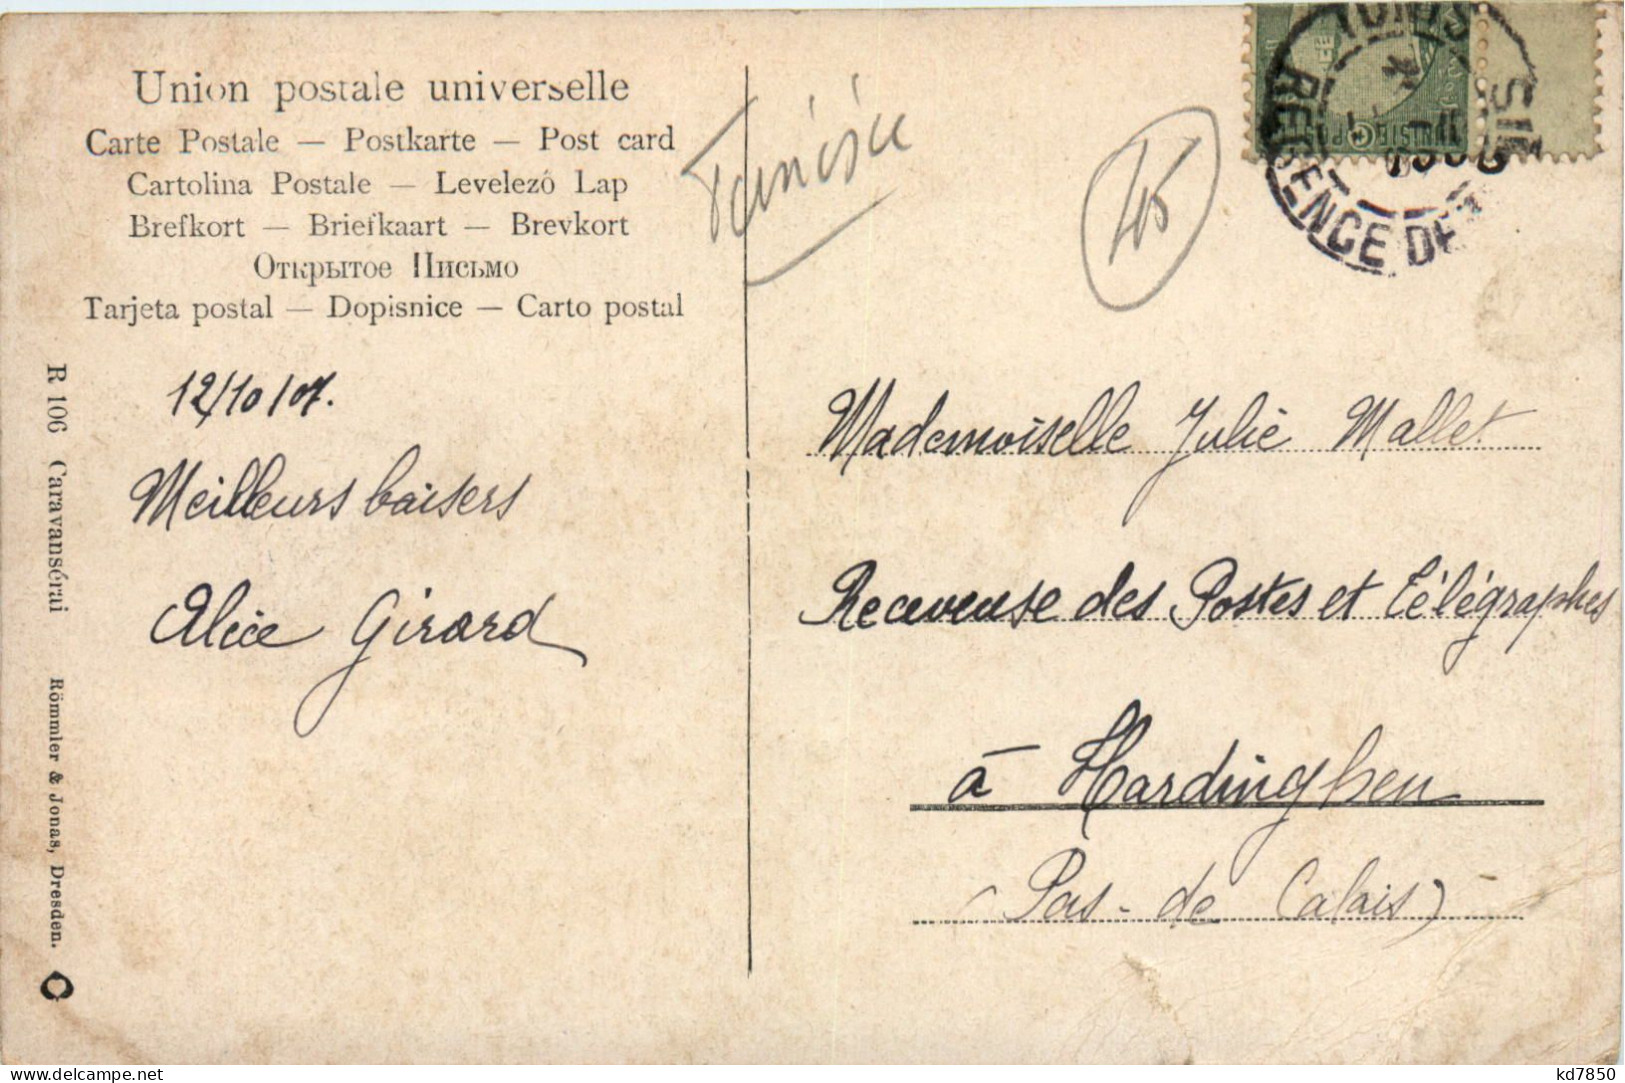 Union postale universelle
Carte Postale — Postkarte — Post card
Cartolina Postale — Levelező Lap
Brefkort — Briefkaart — Brevkort
Открытое Письмо
Tarjeta postal — Dopisnice — Carto postal
Tunisie
45
TUNIS
REGENCE DE
SIE
12/10/07.
Meilleurs baisers
Alice Girard
Mademoiselle Julie Mallet
Receveuse des Postes et Télégraphes
à Hardinghen
(Pas-de Calais)
R 106 Caravansérai
Römmler & Jonas, Dresden.
kd7850